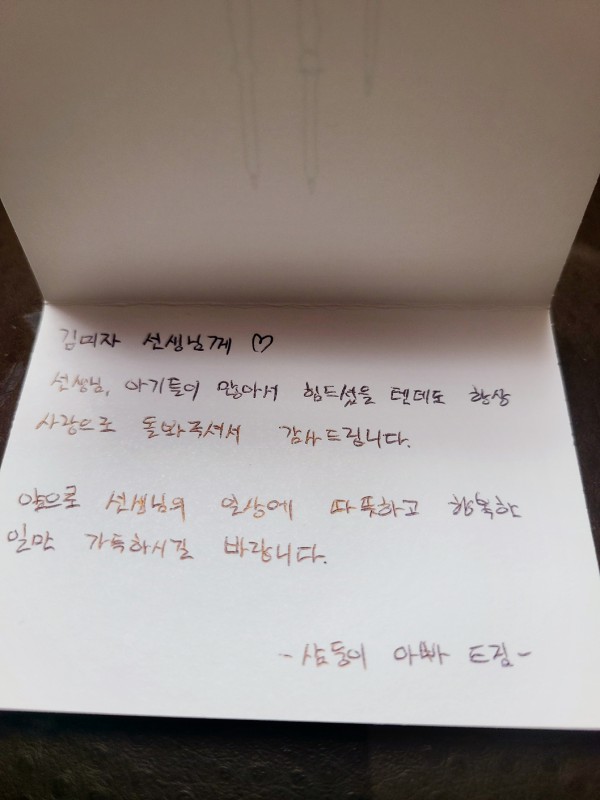 김미자 선생님께 ♡
선생님, 아기들이 많아서 힘드셨을 텐데도 항상
사랑으로 돌봐주셔서 감사드립니다.
앞으로 선생님의 일상에 따뜻하고 행복한
일만 가득하시길 바랍니다.
-삼둥이 아빠 드림-